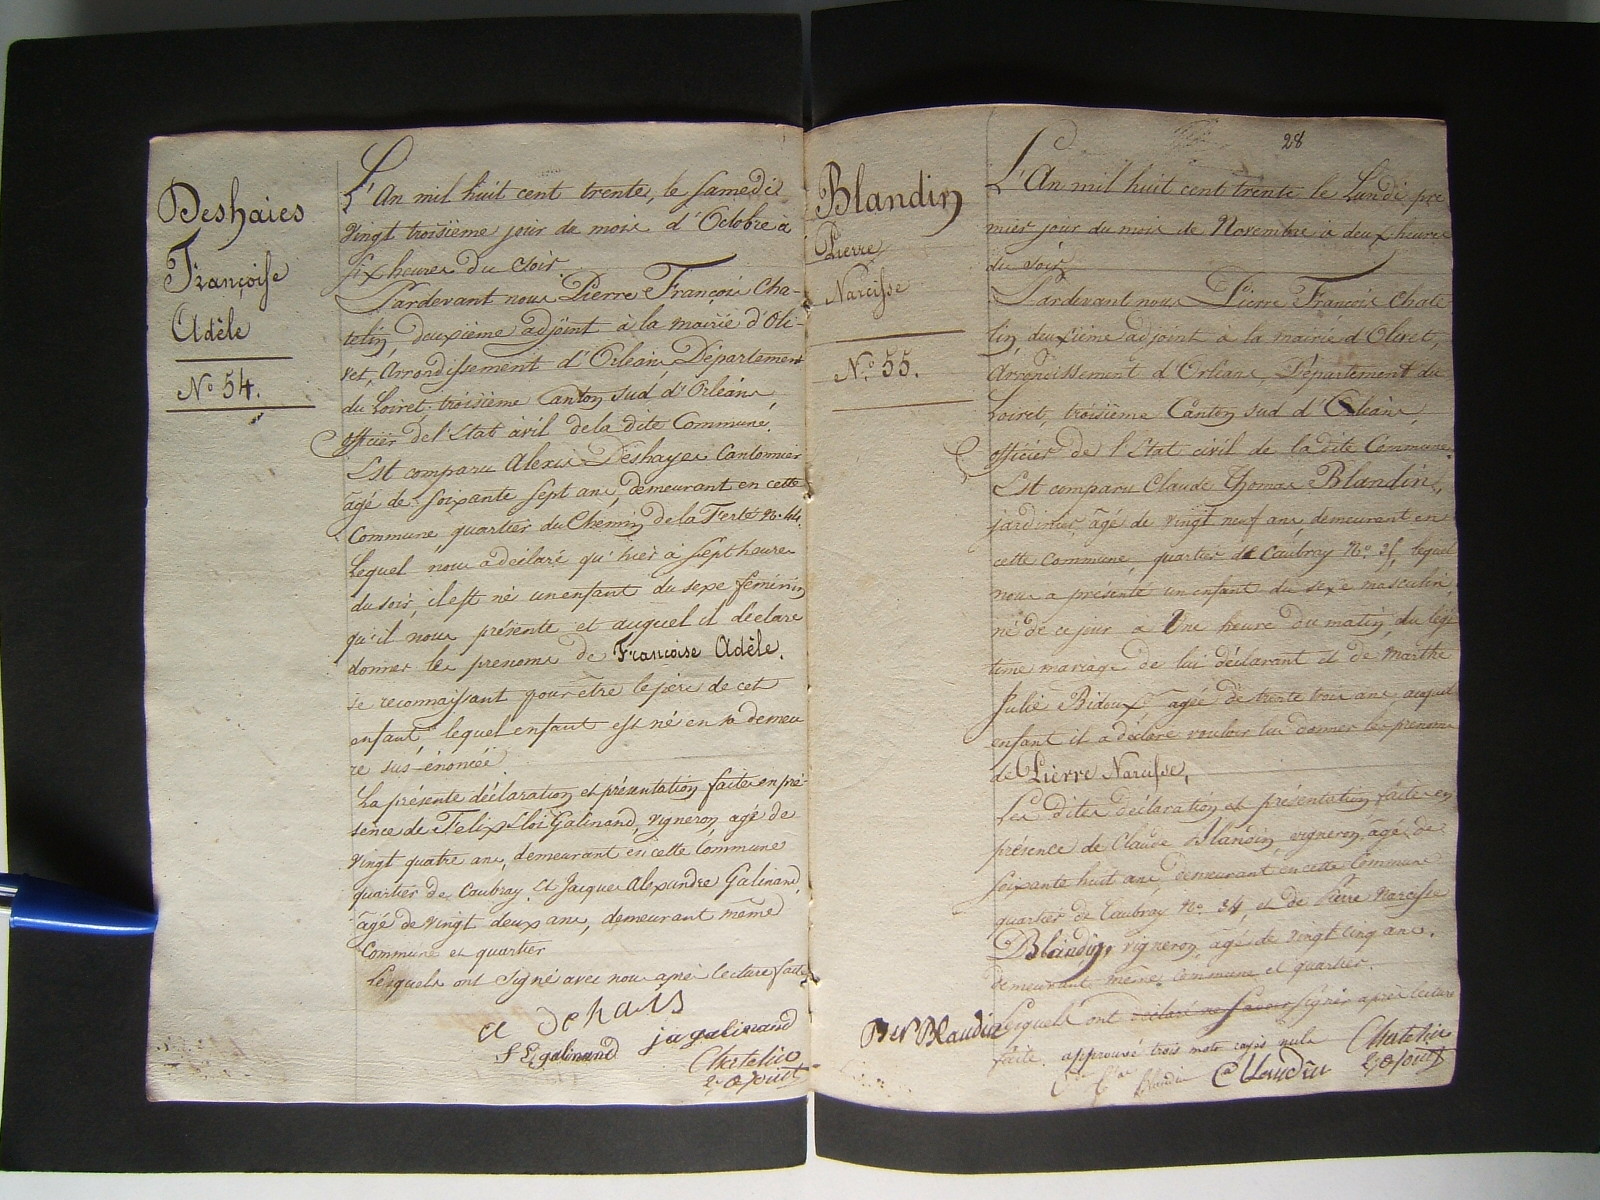 Deshaies
Françoise
Adèle
N.° 54.
L'An mil huit cent trente, le samedi
vingt troisième jour du mois d'Octobre à
six heures du soir.
Pardevant nous Pierre François Cha-
telin, deuxième adjoint à la mairie d'Oli-
vet, Arrondissement d'Orléans Département
du Loiret, troisième Canton sud d'Orléans,
officier de l'Etat civil de la dite Commune.
Est comparu Alexis Deshayes Cantonnier
âgé de soixante sept ans, demeurant en cette
Commune, quartier du Chemin de la Ferté N.° 44.
Lequel nous a déclaré qu'hier à sept heures
du soir, il est né un enfant du sexe féminin
qu'il nous présente et auquel il déclare
donner les prenoms de Françoise Adèle.
se reconnaissant pour être le père de cet
enfant, lequel enfant est né en sa demeu
re sus énoncée.
La présente déclaration et présentation faite en pré-
sence de Felix Eloi Galinand, vigneron, âgé de
vingt quatre ans, demeurant en cette Commune
quartier de Caubray. Et Jacques Alexandre Galinand,
âgé de vingt deux ans, demeurant même
Commune et quartier
Lesquels ont signé avec nous après lecture faite
a dehais
f E galinand
ja galinand
Chatelin
2.e adjoint
28
Blandin
Pierre
Narcisse
N.° 55.
L'An mil huit cent trente le Lundi pre
mier jour du mois de Novembre à deux heures
du soir
Pardevant nous Pierre François Chate
lin, deuxième adjoint à la mairie d'Olivet,
Arrondissement d'Orléans, Département du
Loiret, troisième Canton sud d'Orléans,
officier de l'Etat civil de la dite Commune.
Est comparu Claude Thomas Blandin,
jardinier, âgé de vingt neuf ans, demeurant en
cette Commune, quartier de Caubray N.° lequel
nous a présenté un enfant du sexe masculin,
né de ce jour a Une heure du matin, du legi
time mariage de lui déclarant et de Marthe
Julie Bidoux âgée de trente trois ans, auquel
enfant il a déclaré vouloir lui donner les prenoms
de Pierre Narcisse,
Les dites déclaration et présentation faites en
présence de Claude Blandin, vigneron, âgé de
soixante huit ans, demeurant en cette Commune
quartier de Caubray N.° 34, et de Pierre Narcisse
Blandin, vigneron, âgé de vingt cinq ans.
demeurant même Commune et quartier.
Lesquels ont déclaré ne savoir signer après lecture
faite. approuvé trois mots rayés nuls
Blandin
Blandin
C Blandin
Chatelin
2.e adjoint